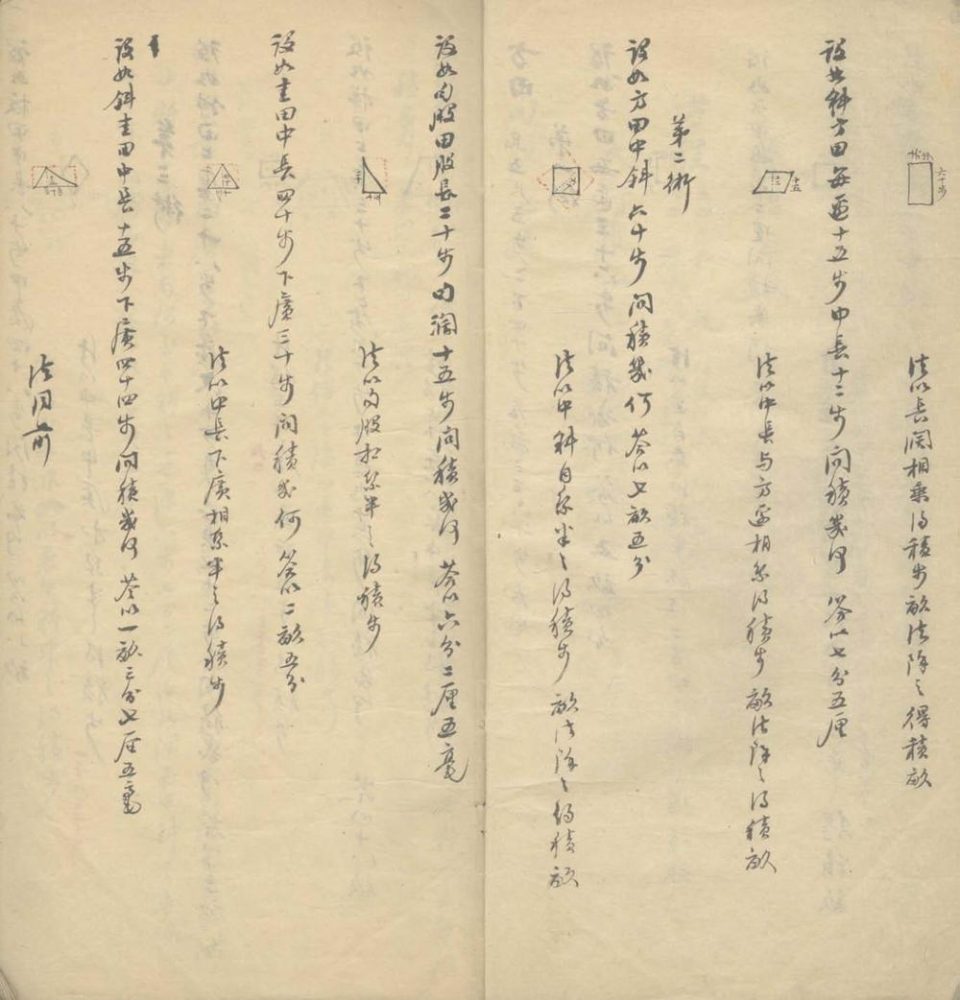 法以長闊相乘得積步畝法除之得積畝
設如斜方田每邊十五步中長十二步問積幾何 答以七分五厘
法以中長与方邊相乘得積步 畝法除之得積畝
十五
第二術
設如方田中斜六十步問積幾何 答以七畝五分
法以中斜自乘半之得積步 畝法除之得積畝
設如勾股田股長二十步勾濶十五步問積幾何 答以六分二厘五毫
法以勾股相乘半之得積步
設如圭田中長四十步下廣三十步問積幾何 答以二畝五分
法以中長下廣相乘半之得積步
設如斜圭田中長十五步下廣四十四步問積幾何 答以一畝三分七厘五毫
法同前